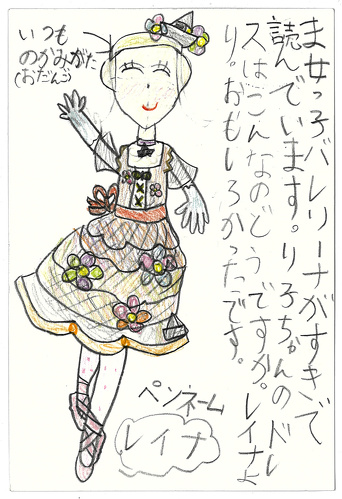 ま女っ子バレリーナがすきで
読んでいます。り子ちゃんのドレ
スはこんなのどうですか。レイナよ
り。おもしろかったです。
いつも
のかみがた
(おだんご)
ペンネーム
レイナ